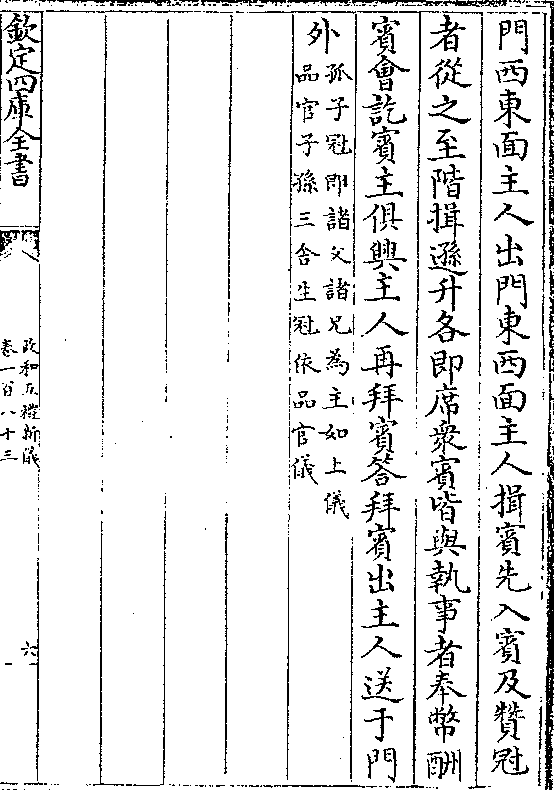 門西東面主人出門東西面主人揖賓先入賓及贊冠
者從之至階揖遜升各即席衆賓皆與執事者奉幣酬
賓會訖賓主俱興主人再拜賓答拜賓出主人送于門
外孤子冠即諸父諸兄為主如上儀
品官子孫三舍生冠依品官儀
欽定四庫全書
政和五禮新儀
卷一百八十三
六